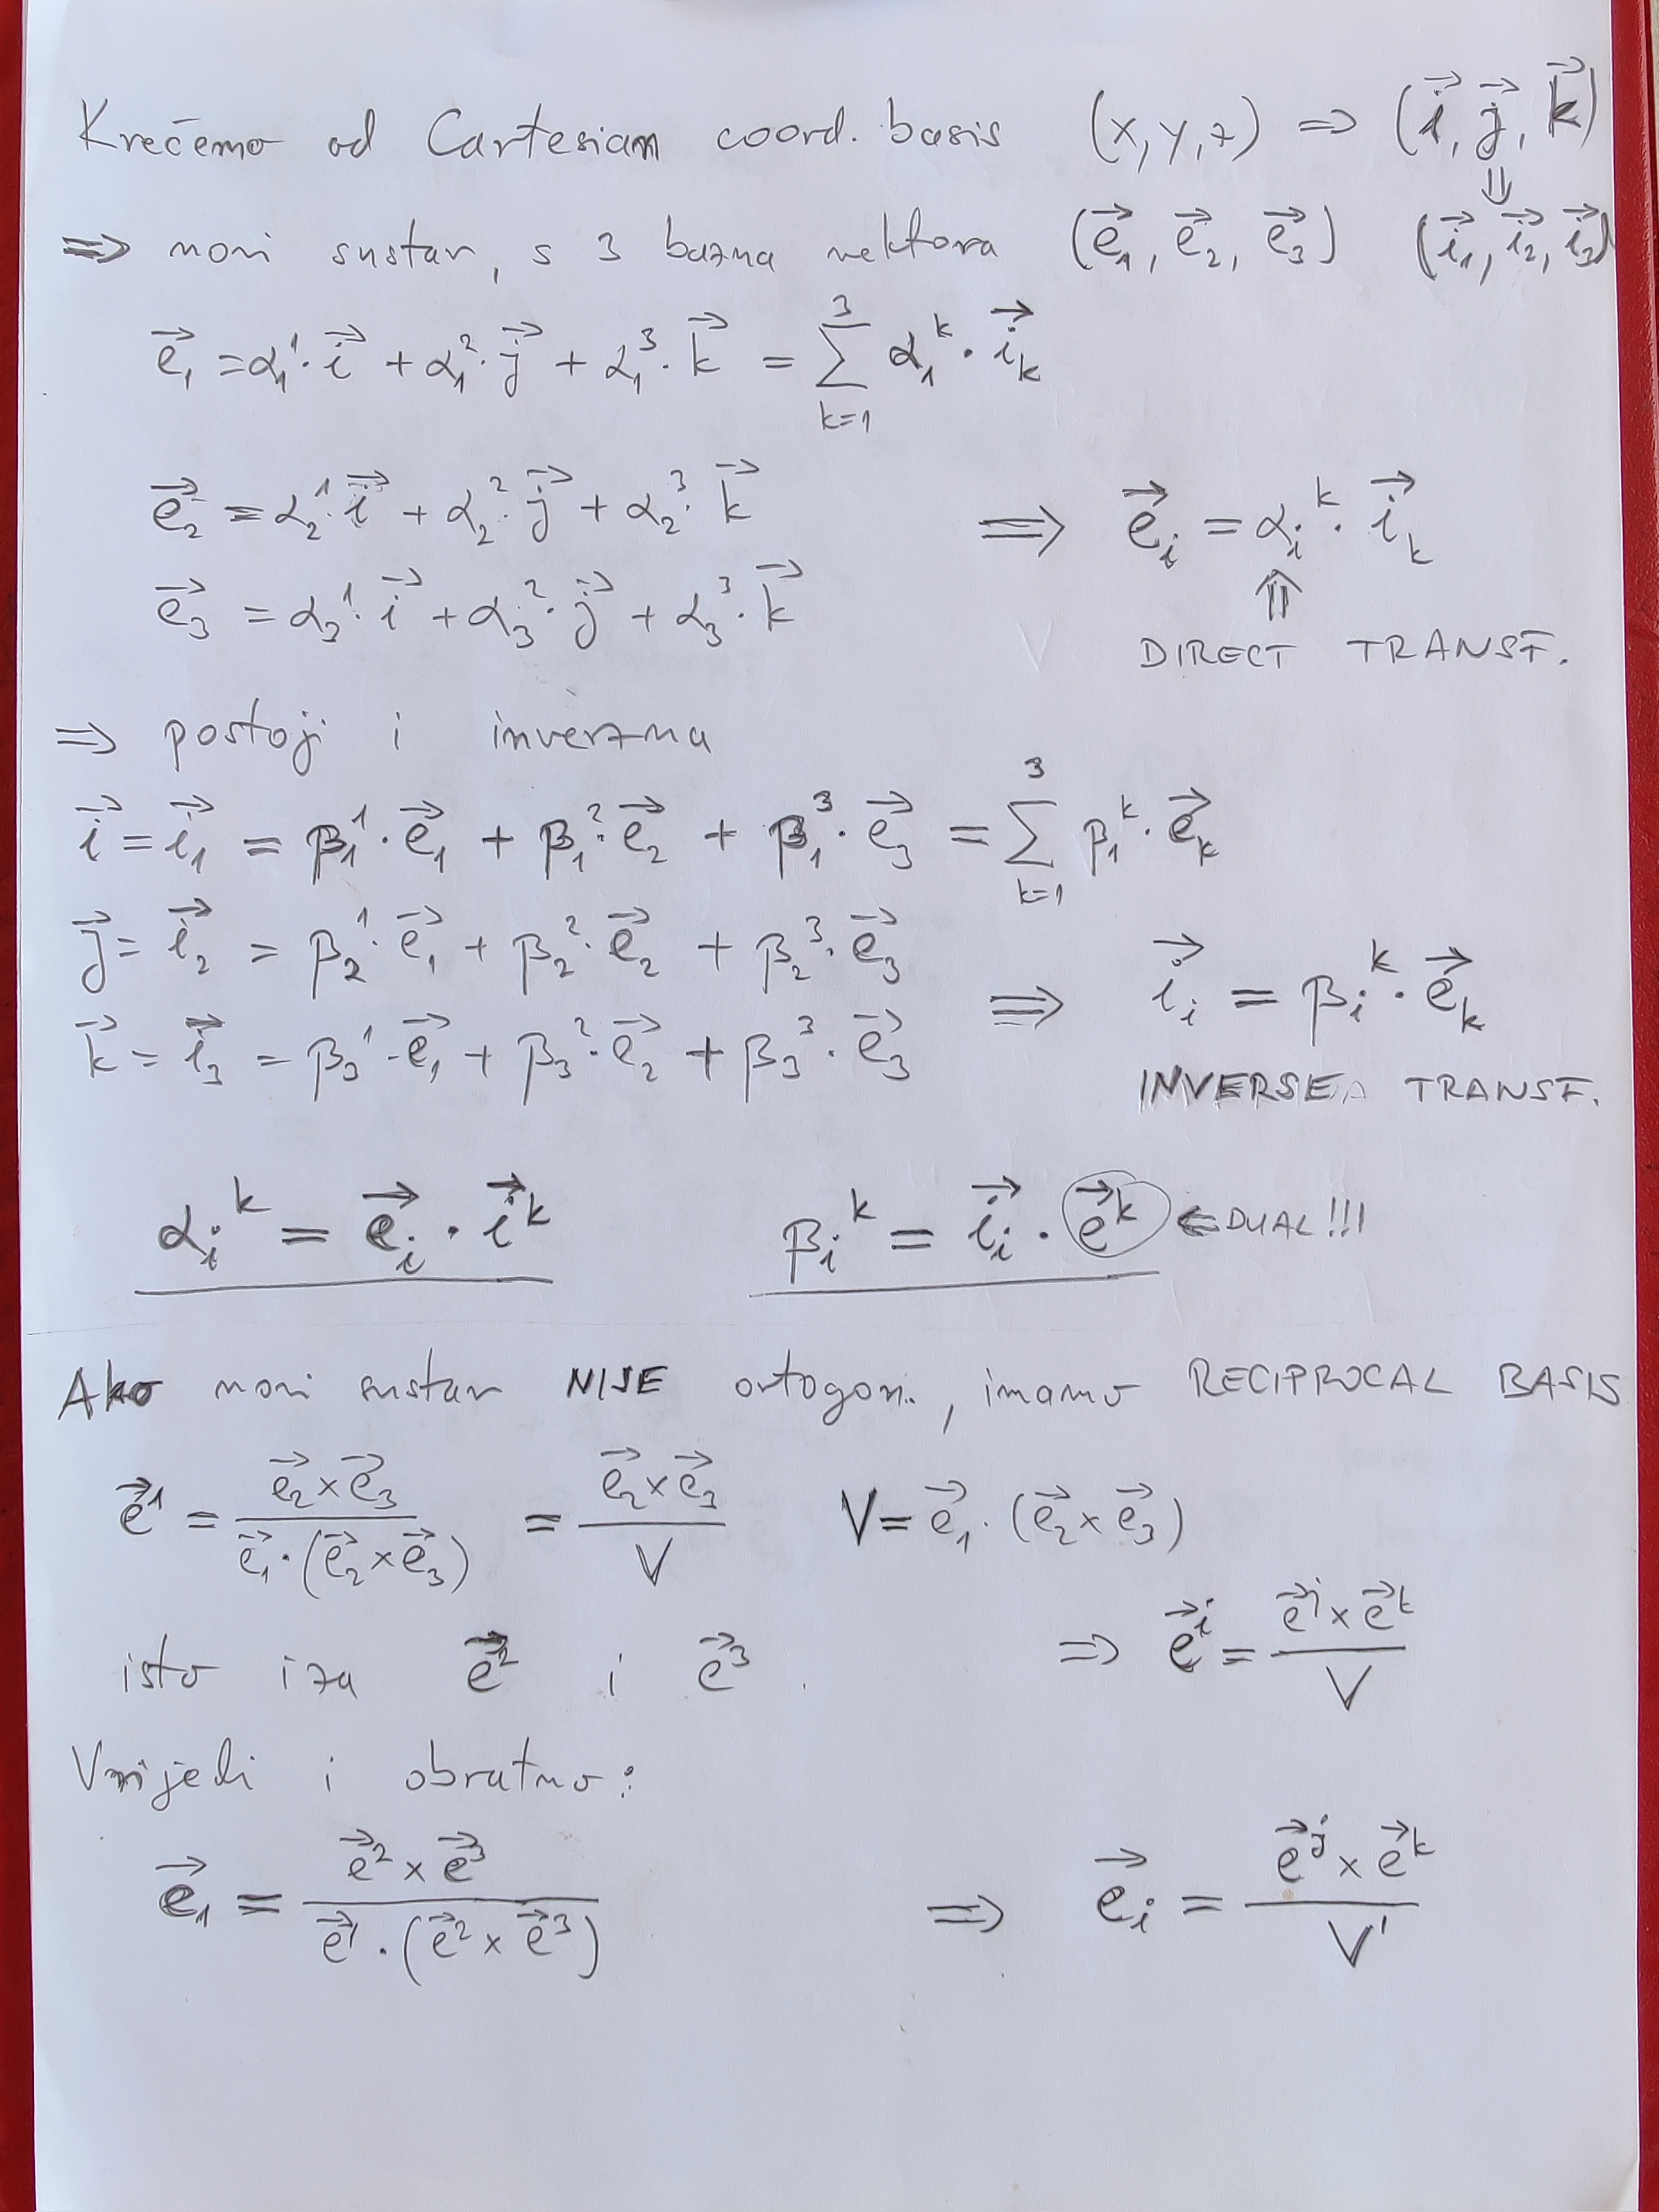 Krećemo od Cartesian coord. basis (x, y, z) ⇒ (i⃗, j⃗, k⃗)
⇓
⇒ novi sustav, s 3 bazna vektora (e⃗₁, e⃗₂, e⃗₃) (i⃗₁, i⃗₂, i⃗₃)
e⃗₁ = α₁¹·i⃗ + α₁²·j⃗ + α₁³·k⃗ = ∑_{k=1}^{3} α₁ᵏ·i⃗ₖ
e⃗₂ = α₂¹·i⃗ + α₂²·j⃗ + α₂³·k⃗ ⇒ e⃗ᵢ = αᵢᵏ·i⃗ₖ
e⃗₃ = α₃¹·i⃗ + α₃²·j⃗ + α₃³·k⃗ ⇑
DIRECT TRANSF.
⇒ postoji i inverzna
i⃗ = i⃗₁ = β₁¹·e⃗₁ + β₁²·e⃗₂ + β₁³·e⃗₃ = ∑_{k=1}^{3} β₁ᵏ·e⃗ₖ
j⃗ = i⃗₂ = β₂¹·e⃗₁ + β₂²·e⃗₂ + β₂³·e⃗₃
k⃗ = i⃗₃ = β₃¹·e⃗₁ + β₃²·e⃗₂ + β₃³·e⃗₃ ⇒ i⃗ᵢ = βᵢᵏ·e⃗ₖ
INVERSE TRANSF.
αᵢᵏ = e⃗ᵢ · i⃗ᵏ βᵢᵏ = i⃗ᵢ · e⃗ᵏ ⇐ DUAL!!!
Ako novi sustav NIJE ortogon., imamo RECIPROCAL BASIS
e⃗¹ = (e⃗₂ × e⃗₃) / (e⃗₁·(e⃗₂ × e⃗₃)) = (e⃗₂ × e⃗₃) / V V = e⃗₁·(e⃗₂ × e⃗₃)
isto i za e⃗² i e⃗³. ⇒ e⃗ⁱ = (e⃗ʲ × e⃗ᵏ) / V
Vrijedi i obratno:
e⃗₁ = (e⃗² × e⃗³) / (e⃗¹·(e⃗² × e⃗³)) ⇒ e⃗ᵢ = (e⃗ʲ × e⃗ᵏ) / V'